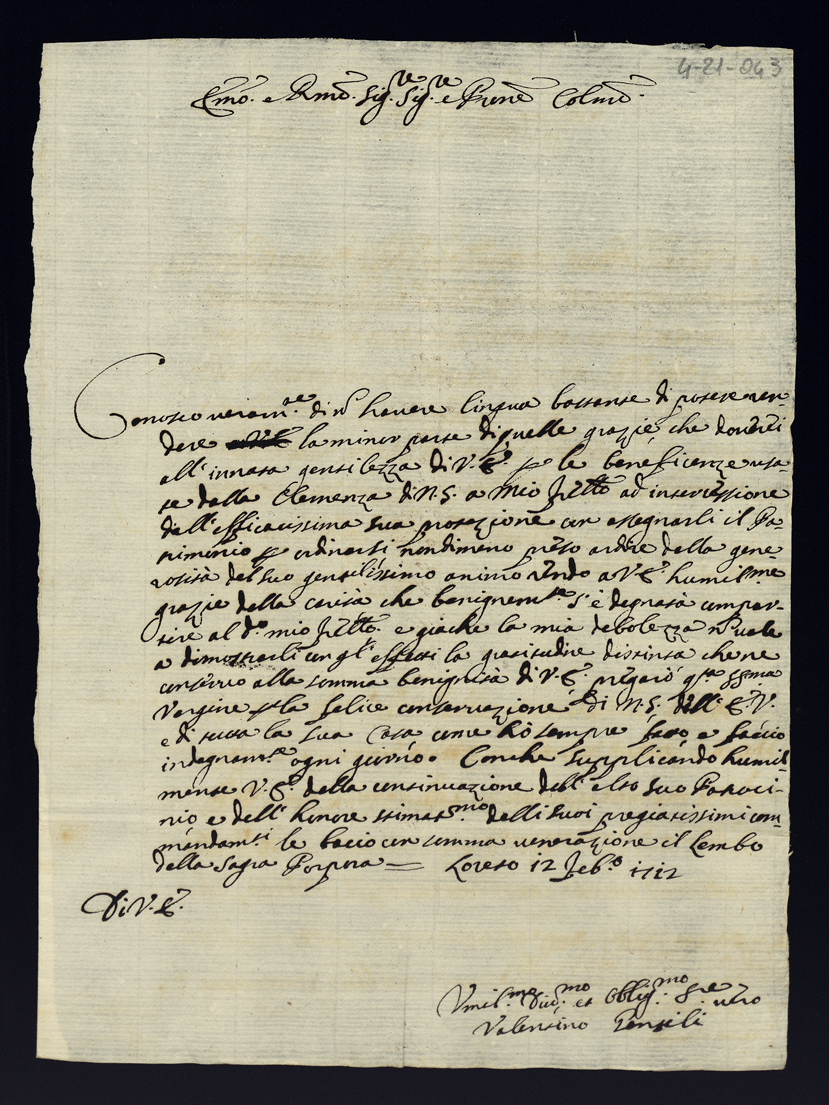 4-21-043
Emo. e Rmo. Sigre Sigre e Prone Colmo.
Conosco veramte. di nō havere lingua bastante di potere ren
dere la minor parte di quelle grazie che dovrei
all'innata gentilezza di V.E. p le beneficenze usa-
te dalla Clemenza di N.S. a mio fratto ad intercessione
dell'efficacissima sua protezione con assegnarli il Pa-
trimonio p ordinarsi nondimeno preso ardire della gene-
rosità del suo gentilissimo animo rendo a V.E. humilme
grazie della carità che benignemte. s'è degnata compar-
tire al do. mio fratto. e giache la mia debolezza nō vale
a dimostrarli con gl'effetti la gratitudine distinta che ne
conservo alla somma benignità di V.E. pregarò qta SSma
Vergine p la felice conservazione di N.S. dell'E.V.
e di tutta la sua Casa come hò sempre fatto e faccio
indegnamte. ogni giorno. Con che supplicando humil-
mente V.E. della continuazione dell'alto suo Patroci-
nio e dell'honore stimatmo. delli suoi pregiatissimi com-
mandamti le bacio con somma venerazione il Lembo
della Sagra Porpora = Loreto 12 Febo. 1712
Di V.E.
Umilmo Divmo. et Obligmo. Sre vero
Valentino Gentili